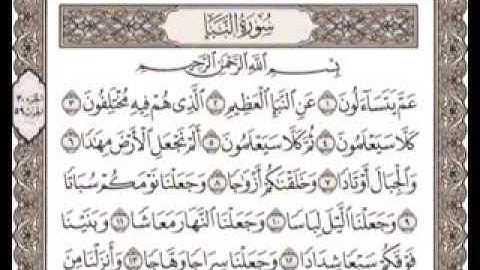 سُورَةُ النَّبَإِ
بِسْمِ اللَّهِ الرَّحْمَٰنِ الرَّحِيمِ
عَمَّ يَتَسَاءَلُونَ ١ عَنِ النَّبَإِ الْعَظِيمِ ٢ الَّذِي هُمْ فِيهِ مُخْتَلِفُونَ ٣
كَلَّا سَيَعْلَمُونَ ٤ ثُمَّ كَلَّا سَيَعْلَمُونَ ٥ أَلَمْ نَجْعَلِ الْأَرْضَ مِهَٰدًا ٦
وَالْجِبَالَ أَوْتَادًا ٧ وَخَلَقْنَٰكُمْ أَزْوَٰجًا ٨ وَجَعَلْنَا نَوْمَكُمْ سُبَاتًا
٩ وَجَعَلْنَا اللَّيْلَ لِبَاسًا ١٠ وَجَعَلْنَا النَّهَارَ مَعَاشًا ١١ وَبَنَيْنَا
فَوْقَكُمْ سَبْعًا شِدَادًا ١٢ وَجَعَلْنَا سِرَاجًا وَهَّاجًا ١٣ وَأَنزَلْنَا مِنَ